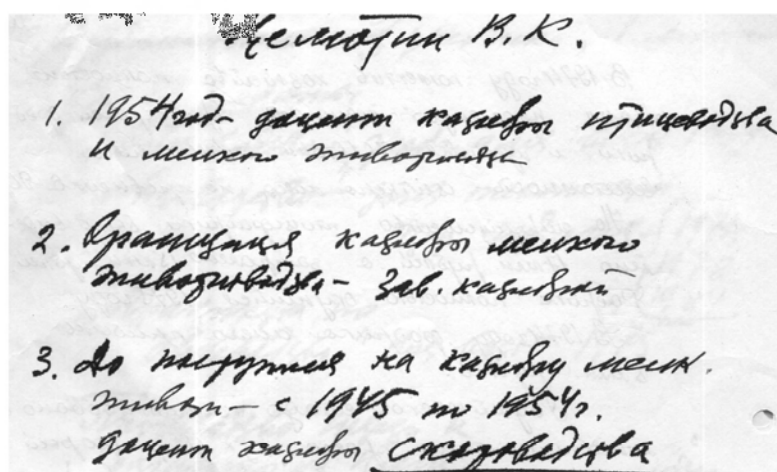 В. К.
1. 1954 год - доцент кафедры птицеводства
и мелкого животноводства
2. Организация кафедры мелкого
животноводства - зав. кафедрой
3. До поступления на кафедру мелк.
живот. - с 1945 по 1954 г.
доцент кафедры скотоводства